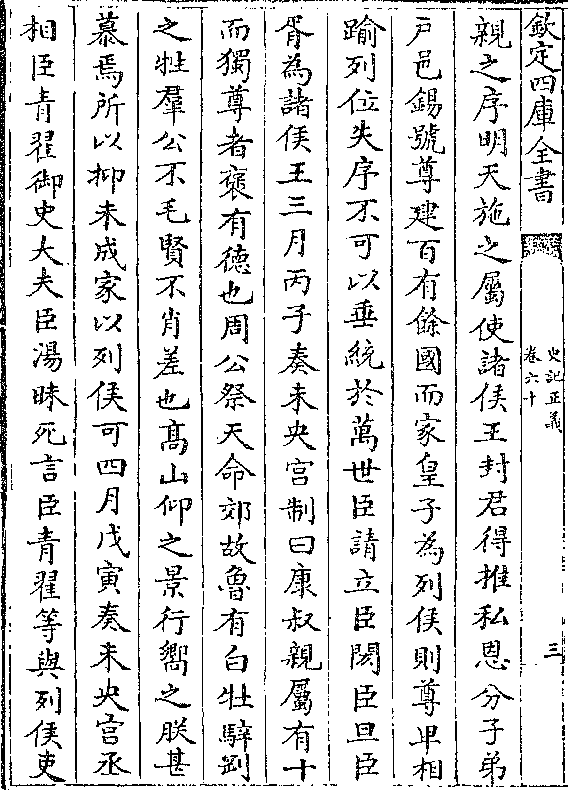 欽定四庫全書
史記正義
卷六十
三
親之序明天施之屬使諸侯王封君得推私恩分子弟
户邑錫號尊建百有餘國而家皇子為列侯則尊卑相
踰列位失序不可以垂統於萬世臣請立臣閎臣旦臣
胥為諸侯王三月丙子奏未央宫制曰康叔親屬有十
而獨尊者襃有德也周公祭天命郊故魯有白牡騂剛
之牲羣公不毛賢不肖差也高山仰之景行嚮之朕甚
慕焉所以抑未成家以列侯可四月戊寅奏未央宫丞
相臣青翟御史大夫臣湯昧死言臣青翟等與列侯吏